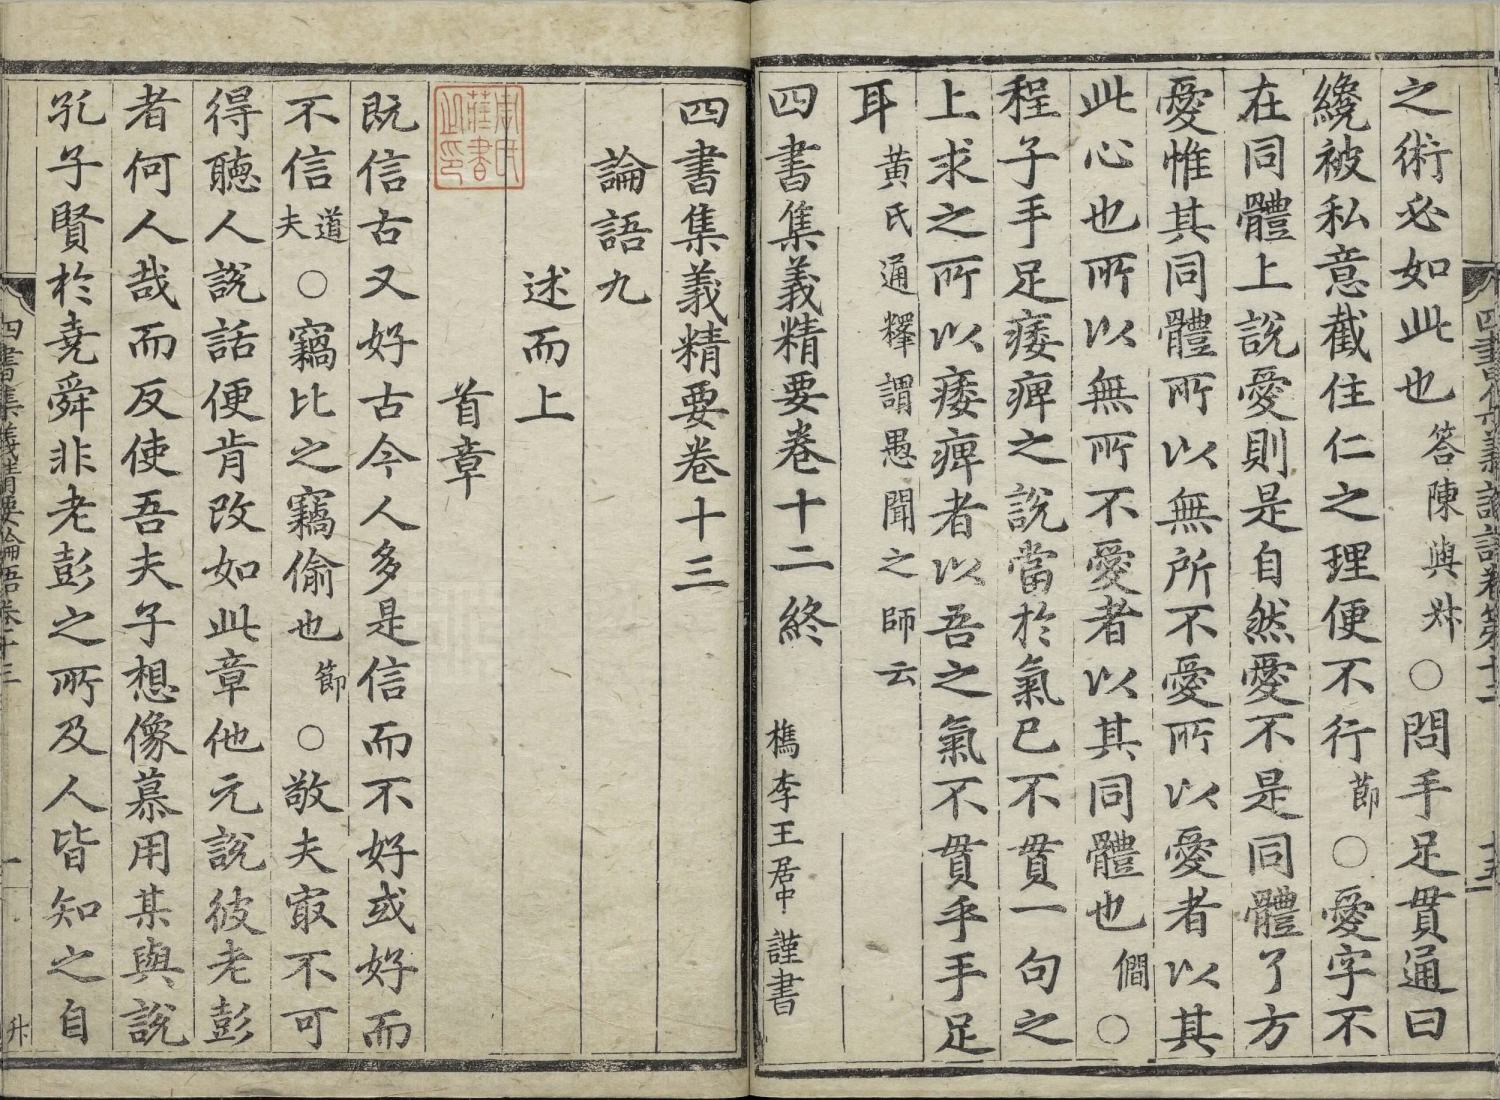 之術必如此也答陳與叔○問手足貫通曰
纔被私意截住仁之理便不行節○愛字不
在同體上說愛則是自然愛不是同體了方
愛惟其同體所以無所不愛所以愛者以其
此心也所以無所不愛者以其同體也僩○
程子手足痿痺之說當於氣已不貫一句之
上求之所以痿痺者以吾之氣不貫乎手足
耳黄氏通釋謂愚聞之師云
四書集義精要卷十二終 檇李王居中謹書
四書集義精要卷十三
論語九
述而上
首章
既信古又好古今人多是信而不好或好而
不信道夫○竊比之竊偷也節○敬夫㝡不可
得聽人說話便肯改如此章他元說彼老彭
者何人哉而反使吾夫子想像慕用某與說
孔子賢於堯舜非老彭之所及人皆知之自
四書集義精要論語卷十三 一 升